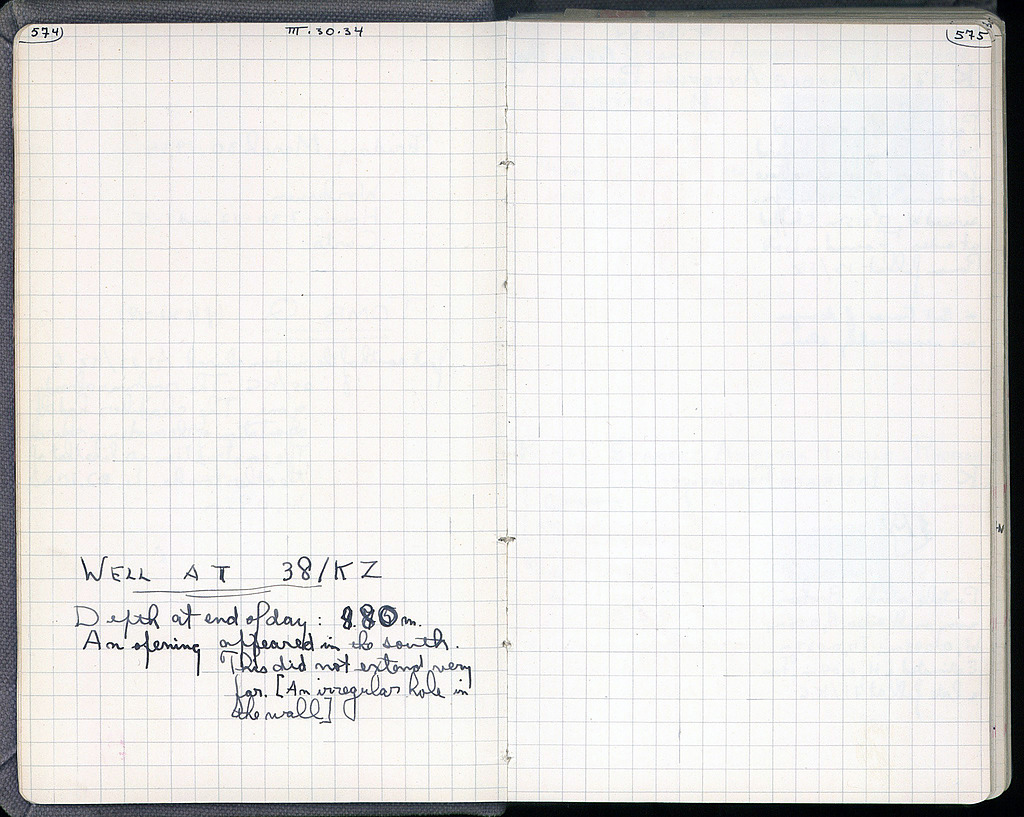 574
III.30.34
575
WELL AT 38/KZ
Depth at end of day: 8.80 m.
An opening appeared in the south.
This did not extend very
far. [An irregular hole in
the wall]